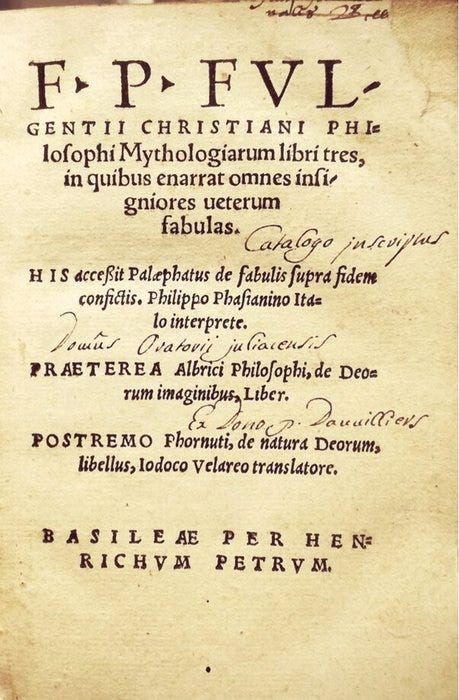 F · P · FVL-
GENTII CHRISTIANI PHI=
losophi Mythologiarum libri tres,
in quibus enarrat omnes insi-
gniores ueterum
fabulas.
Catalogo inscriptus
HIS acceßit Palæphatus de fabulis supra fidem
confictis. Philippo Phasianino Ita=
lo interprete.
Domûs Oratorii juliacensis
PRAETEREA Albrici Philosophi, de Deo=
rum imaginibus, Liber.
Ex Dono p. Dauvilliers
POSTREMO Phornuti, de natura Deorum,
libellus, Iodoco Velareo translatore.
BASILEAE PER HEN=
RICHVM PETRVM.